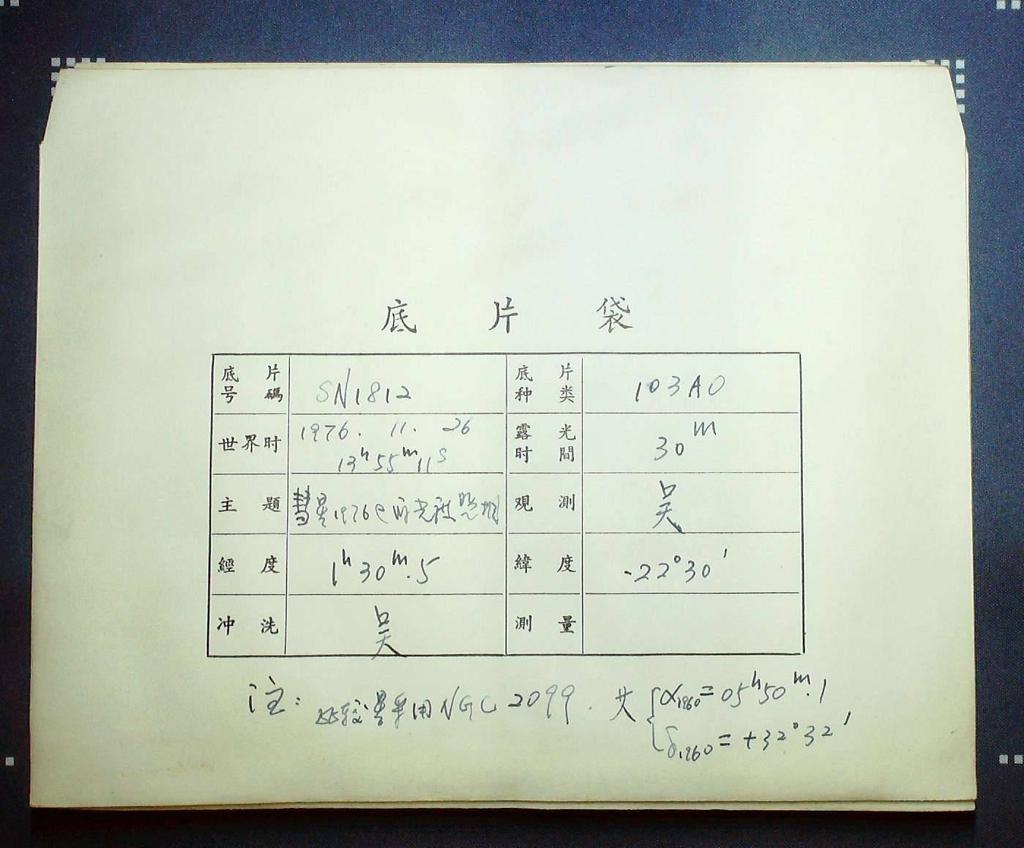 底片袋
底片号碼 SN1812 底片种类 103AO
世界时 1976. 11. 26 13ʰ55ᵐ11ˢ 露光时間 30ᵐ
主題 彗星1976e 照相 观測 吴
經度 1ʰ30ᵐ.5 緯度 -22°30′
冲洗 吴 測量
注: 比较星采用NGC 2099. 其 { α₁₉₆₀=05ʰ50ᵐ.1
δ₁₉₆₀=+32°32′